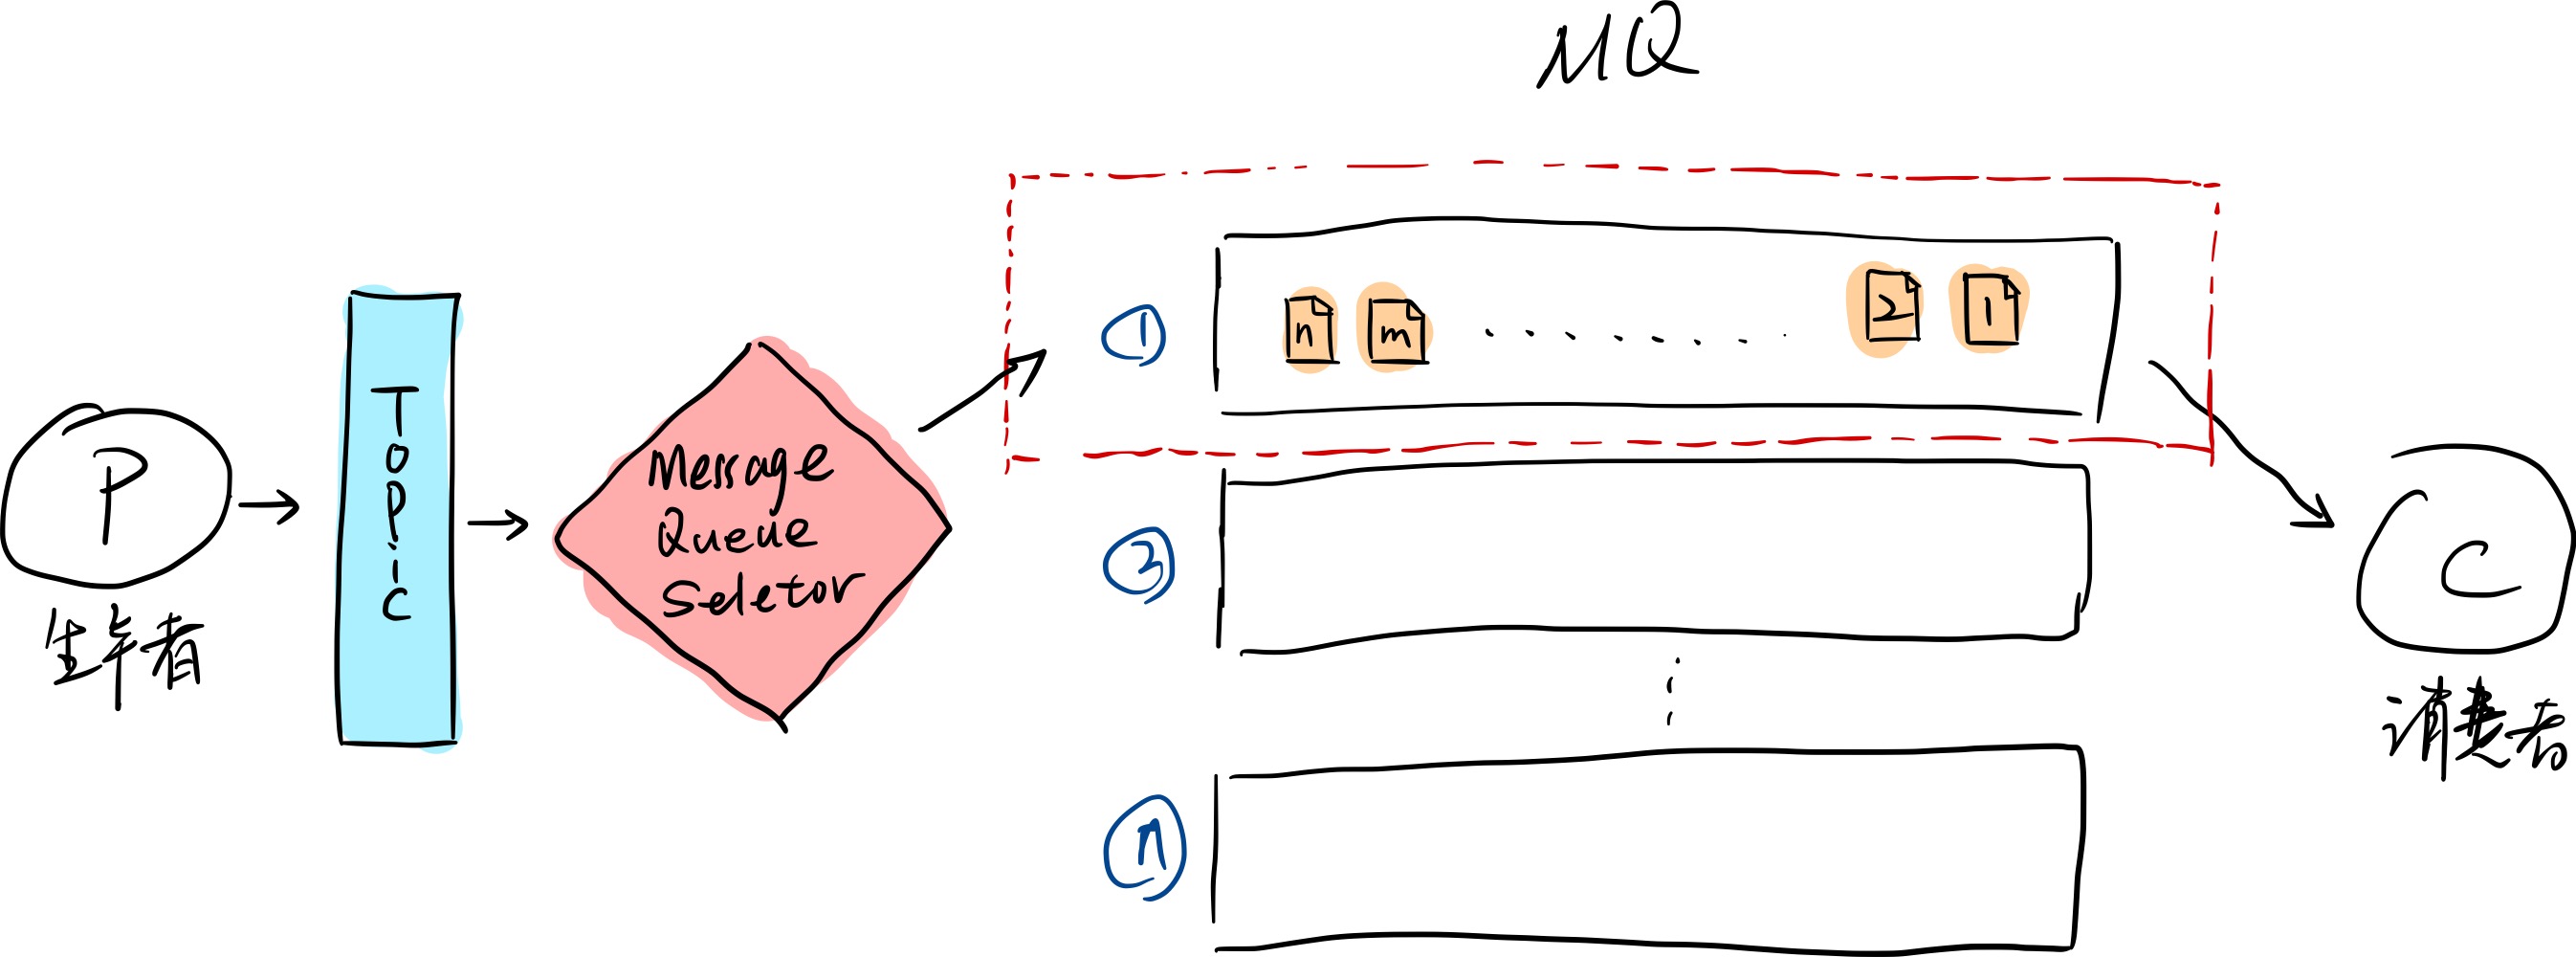 MQ
P
生产者
Topic
Message
Queue
Seletor
①
n
m
.........
2
1
②
ⓝ
C
消费者